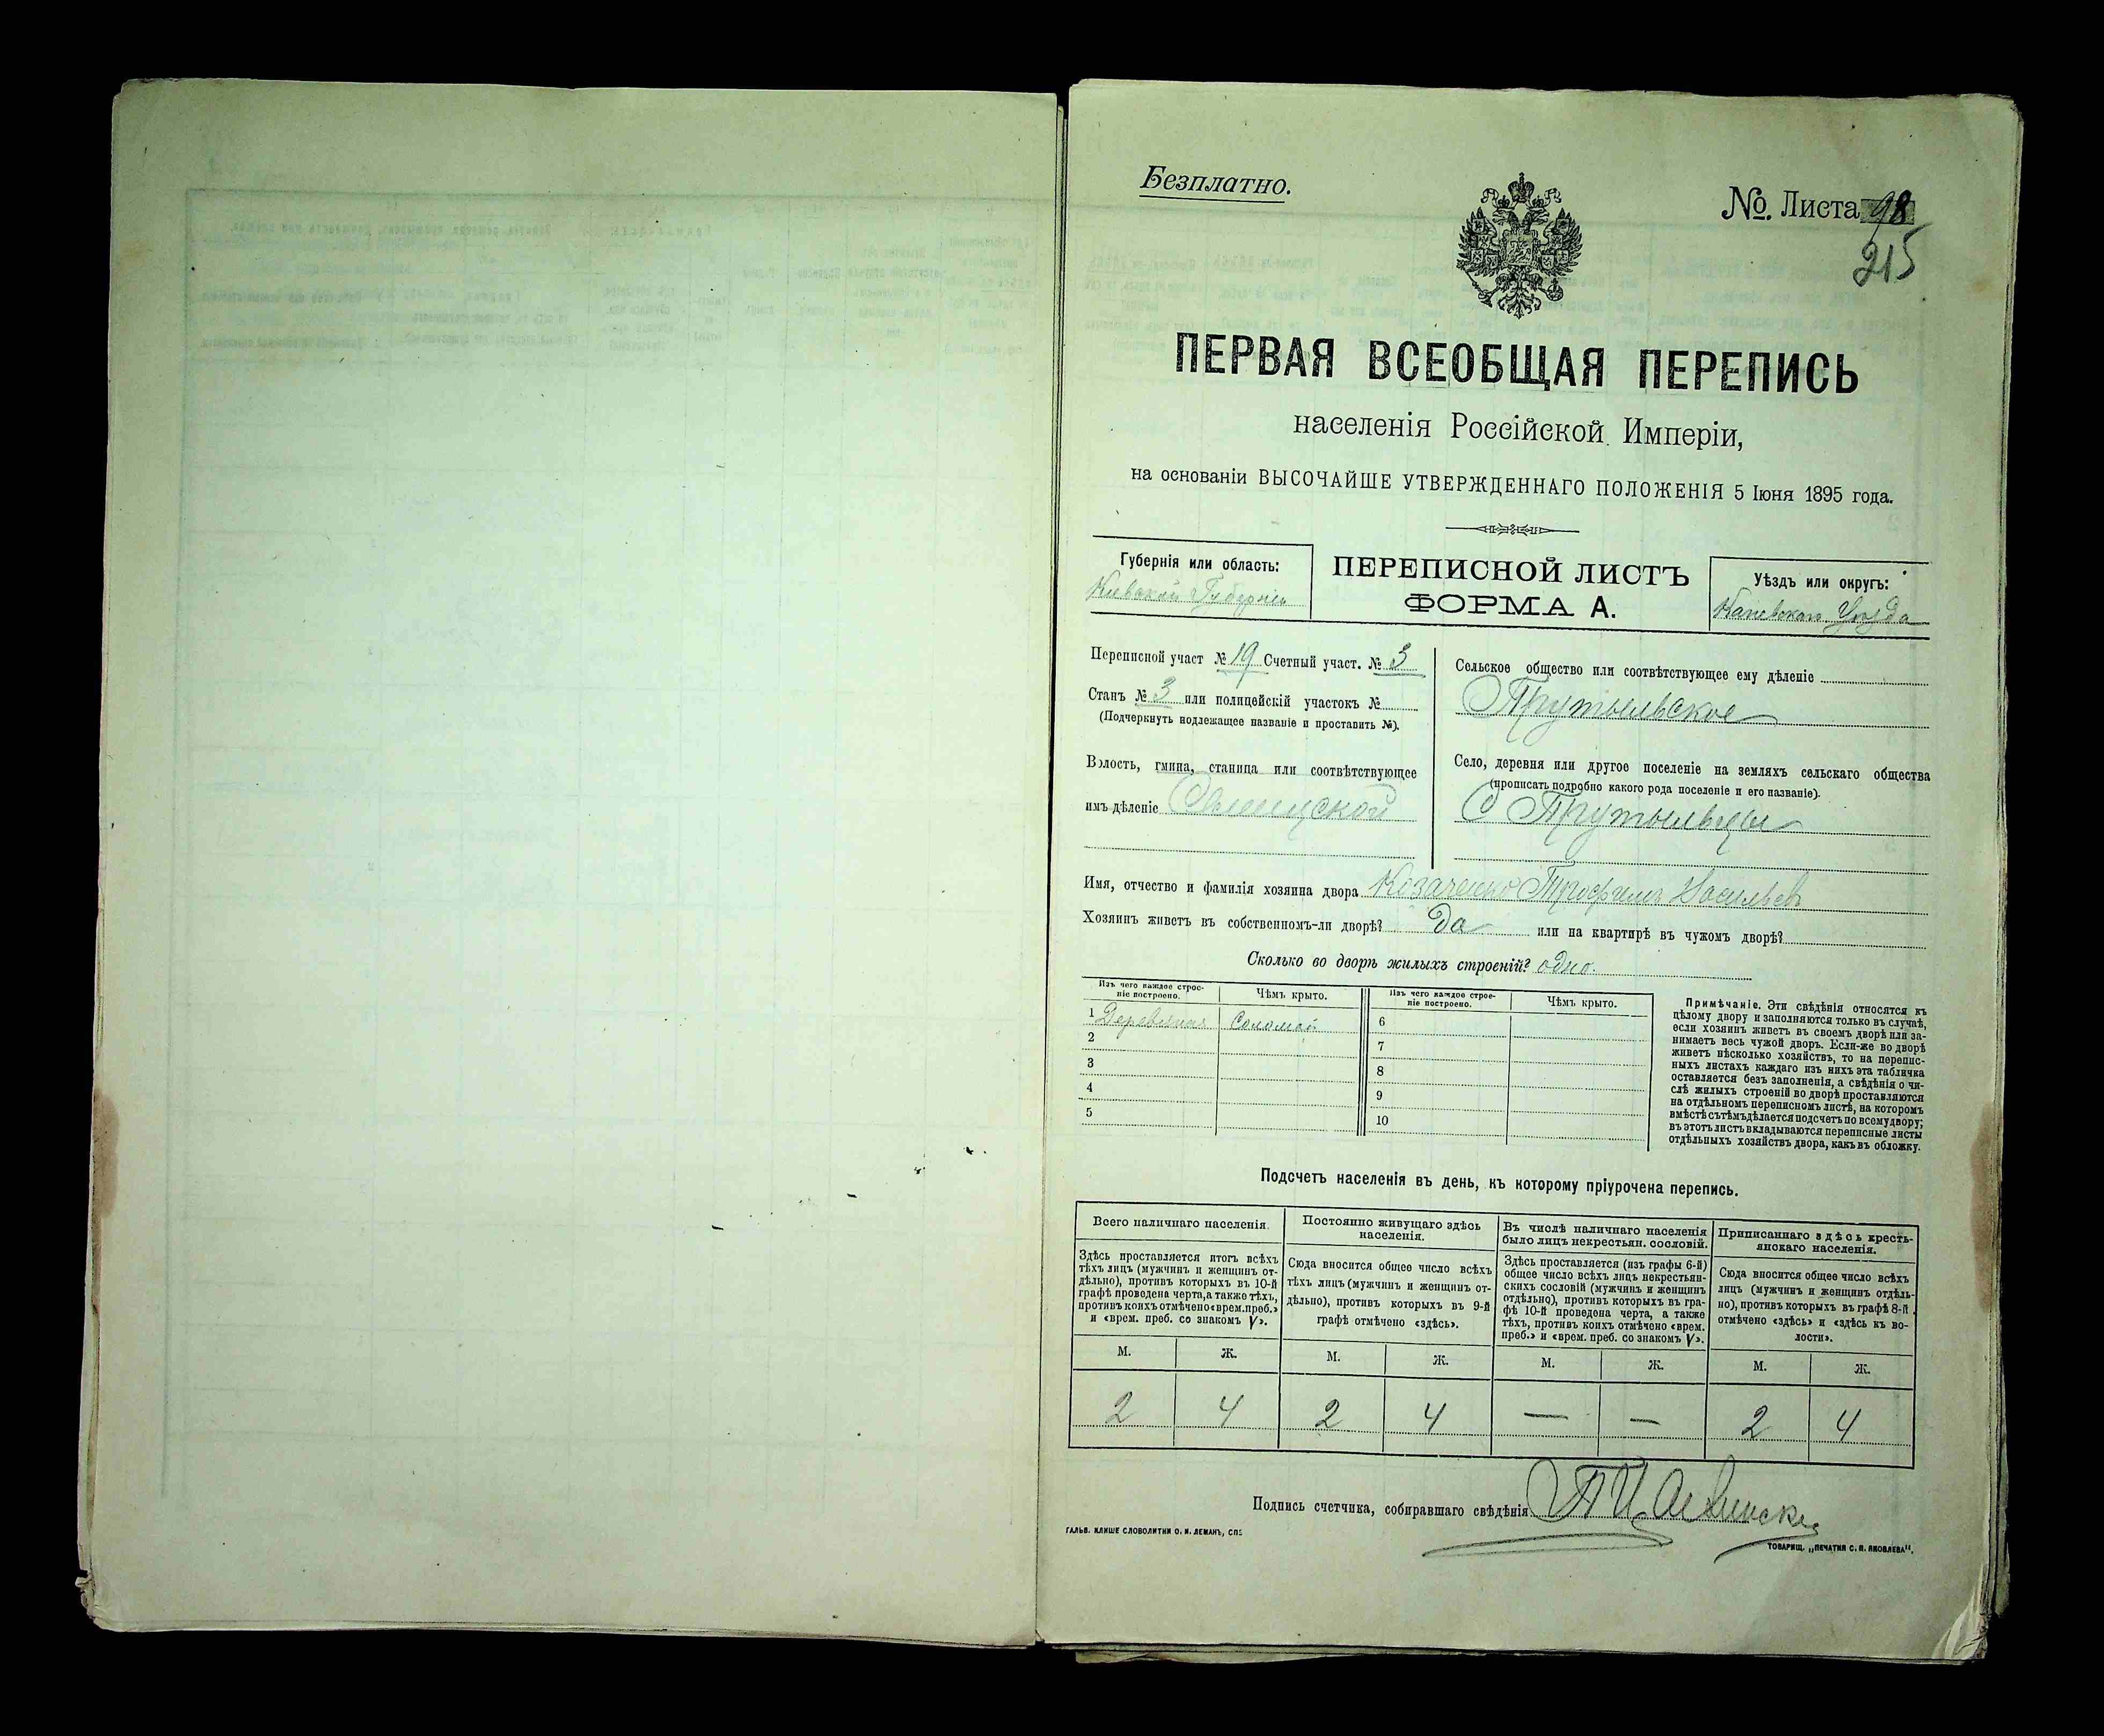 Безплатно.
№. Листа 98
215
ПЕРВАЯ ВСЕОБЩАЯ ПЕРЕПИСЬ
населенія Россійской Имперіи,
на основаніи ВЫСОЧАЙШЕ УТВЕРЖДЕННАГО ПОЛОЖЕНІЯ 5 Іюня 1895 года.
Губернія или область:
Кіевской Губерніи
ПЕРЕПИСНОЙ ЛИСТЪ
ФОРМА А.
Уѣздъ или округъ:
Каневскаго Уѣзда
Переписной участ № 19 Счетный участ. № 3
Станъ № 3 или полицейскій участокъ №
(Подчеркнуть подлежащее названіе и проставить №).
Волость, гмина, станица или соотвѣтствующее
имъ дѣленіе
Сельское общество или соотвѣтствующее ему дѣленіе
Прутыльское
Село, деревня или другое поселеніе на земляхъ сельскаго общества
(прописать подробно какого рода поселеніе и его названіе).
С Прутыльцы
Имя, отчество и фамилія хозяина двора Козаченко Трофимъ Васильевъ
Хозяинъ живетъ въ собственномъ-ли дворѣ? Да или на квартирѣ въ чужомъ дворѣ?
Сколько во дворѣ жилыхъ строеній? одно.
Изъ чего каждое строе-
ніе построено.
Чѣмъ крыто.
Изъ чего каждое строе-
ніе построено.
Чѣмъ крыто.
1 Деревяная Соломой 6
2 7
3 8
4 9
5 10
Примѣчаніе. Эти свѣдѣнія относятся къ
цѣлому двору и заполняются только въ случаѣ,
если хозяинъ живетъ въ своемъ дворѣ или за-
нимаетъ весь чужой дворъ. Если-же во дворѣ
живетъ нѣсколько хозяйствъ, то на перепис-
ныхъ листахъ каждаго изъ нихъ эта табличка
оставляется безъ заполненія, а свѣдѣнія о чи-
слѣ жилыхъ строеній во дворѣ проставляются
на отдѣльномъ переписномъ листѣ, на которомъ
вмѣстѣ съ тѣмъ дѣлается подсчетъ по всему двору;
въ этотъ листъ вкладываются переписные листы
отдѣльныхъ хозяйствъ двора, какъ въ обложку.
Подсчетъ населенія въ день, къ которому пріурочена перепись.
Всего наличнаго населенія.
Здѣсь проставляется итогъ всѣхъ
тѣхъ лицъ (мужчинъ и женщинъ от-
дѣльно), противъ которыхъ въ 10-й
графѣ проведена черта, а также тѣхъ,
противъ коихъ отмѣчено «врем. преб.»
и «врем. преб. со знакомъ V».
Постоянно живущаго здѣсь
населенія.
Сюда вносится общее число всѣхъ
тѣхъ лицъ (мужчинъ и женщинъ от-
дѣльно), противъ которыхъ въ 9-й
графѣ отмѣчено «здѣсь».
Въ числѣ наличнаго населенія
было лицъ некрестьян. сословій.
Здѣсь проставляется (изъ графы 6-й)
общее число всѣхъ лицъ некрестьян-
скихъ сословій (мужчинъ и женщинъ
отдѣльно), противъ которыхъ въ гра-
фѣ 10-й проведена черта, а также
тѣхъ, противъ коихъ отмѣчено «врем.
преб.» и «врем. преб. со знакомъ V».
Приписаннаго здѣсь кресть-
янскаго населенія.
Сюда вносится общее число всѣхъ
лицъ (мужчинъ и женщинъ отдѣль-
но), противъ которыхъ въ графѣ 8-й
отмѣчено «здѣсь» и «здѣсь къ во-
лости».
М. Ж. М. Ж. М. Ж. М. Ж.
2 4 2 4 — — 2 4
Подпись счетчика, собиравшаго свѣдѣнія
ГАЛЬВ. КЛИШЕ СЛОВОЛИТНИ О. И. ЛЕМАНЪ, СПБ
ТОВАРИЩ. „ПЕЧАТНЯ С. П. ЯКОВЛЕВА".